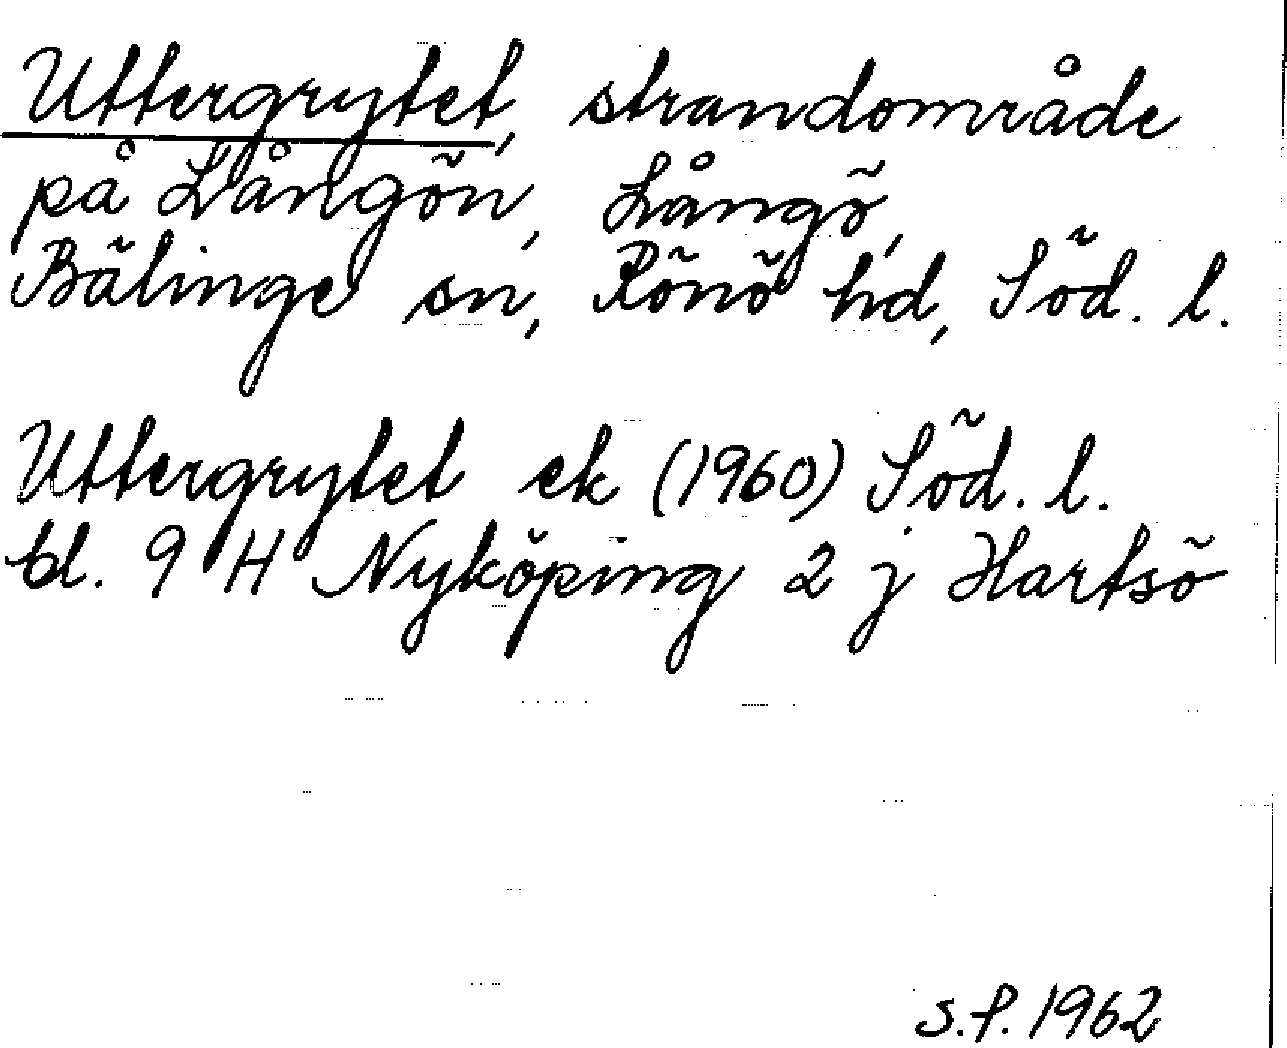 Uttergrytet, strandområde
på Långön, Långö,
Bälinge sn, Rönö hd, Söd. l.
Uttergrytet ek (1960) Söd. l.
bl. 9 H Nyköping 2 j Hartsö
S.P. 1962